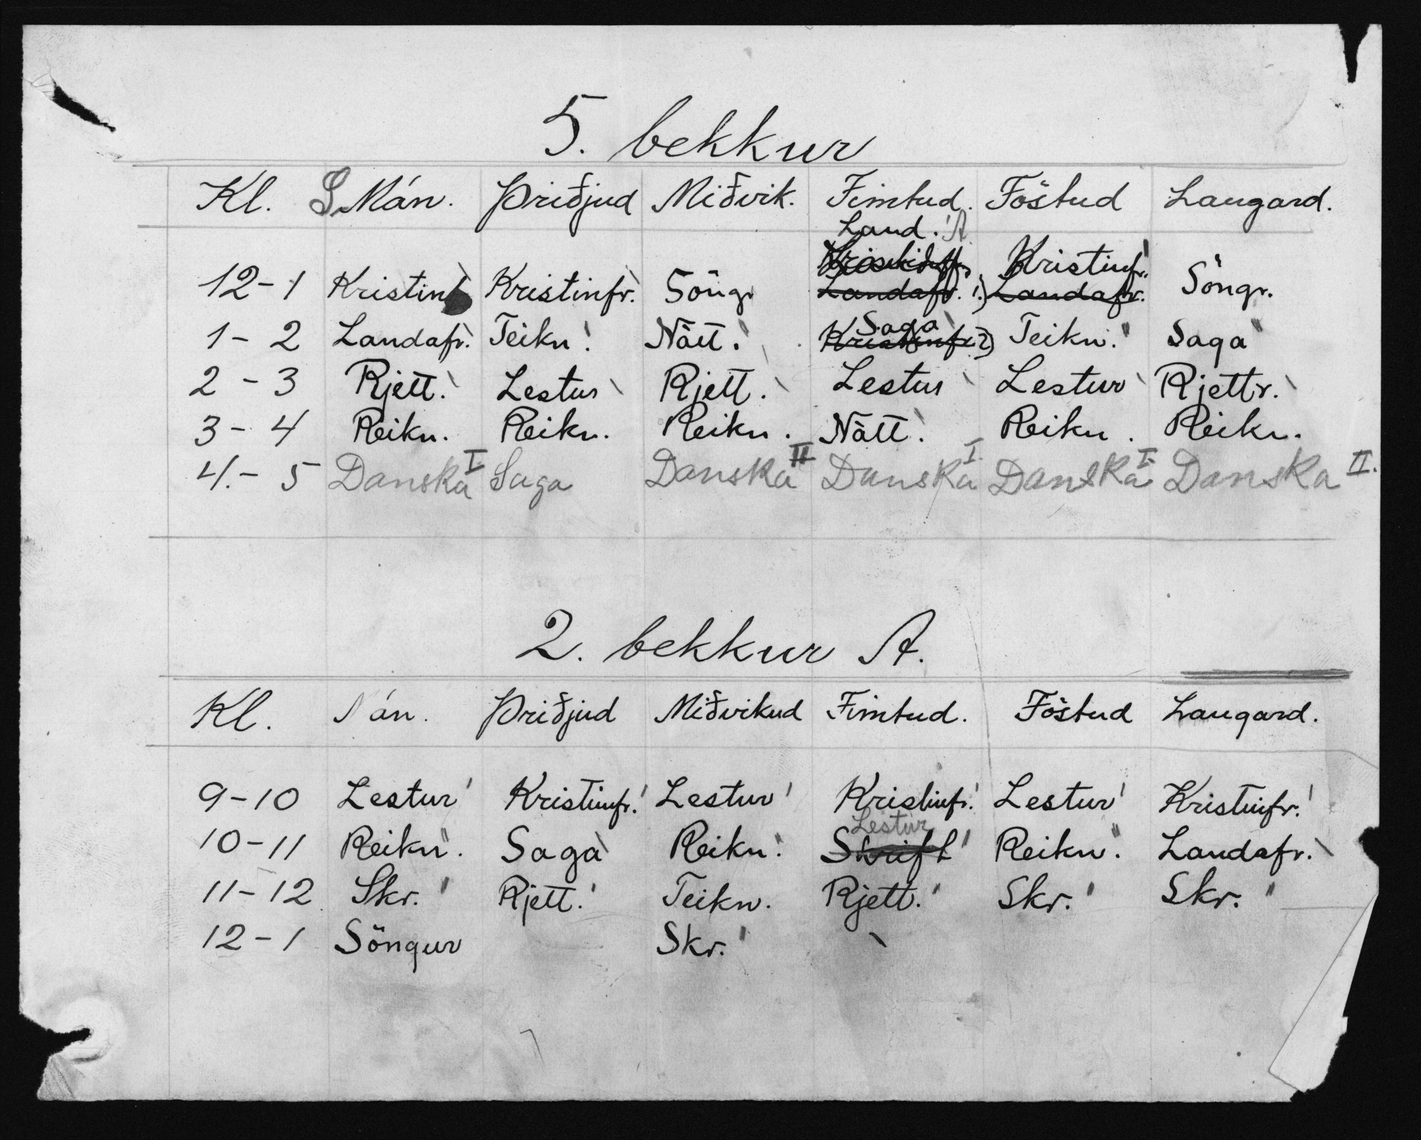 5. bekkur
Kl. Mán. Þriðjud Miðvik. Fimtud. Föstud Laugard.
Land. A
Kristinfr.
12-1 Kristinf Kristinfr. Söngr Landafr. 1.) Landafr. Söngr.
Saga
1-2 Landafr. Teikn. Nátt. Kristinfr. 2) Teikn. Saga
2-3 Rjett. Lestur Rjett. Lestur Lestur Rjettr.
3-4 Reikn. Reikn. Reikn. Nátt. Reikn. Reikn.
4.-5 Danska I Saga Danska II Danska I Danska I Danska II.
2. bekkur A.
Kl. Mán. Þriðjud Miðvikud Fimtud. Föstud Laugard.
9-10 Lestur Kristinfr. Lestur Kristinfr. Lestur Kristinfr.
Lestur
10-11 Reikn. Saga Reikn. Skrift Reikn. Landafr.
11-12 Skr. Rjett. Teikn. Rjett. Skr. Skr.
12-1 Söngur Skr.